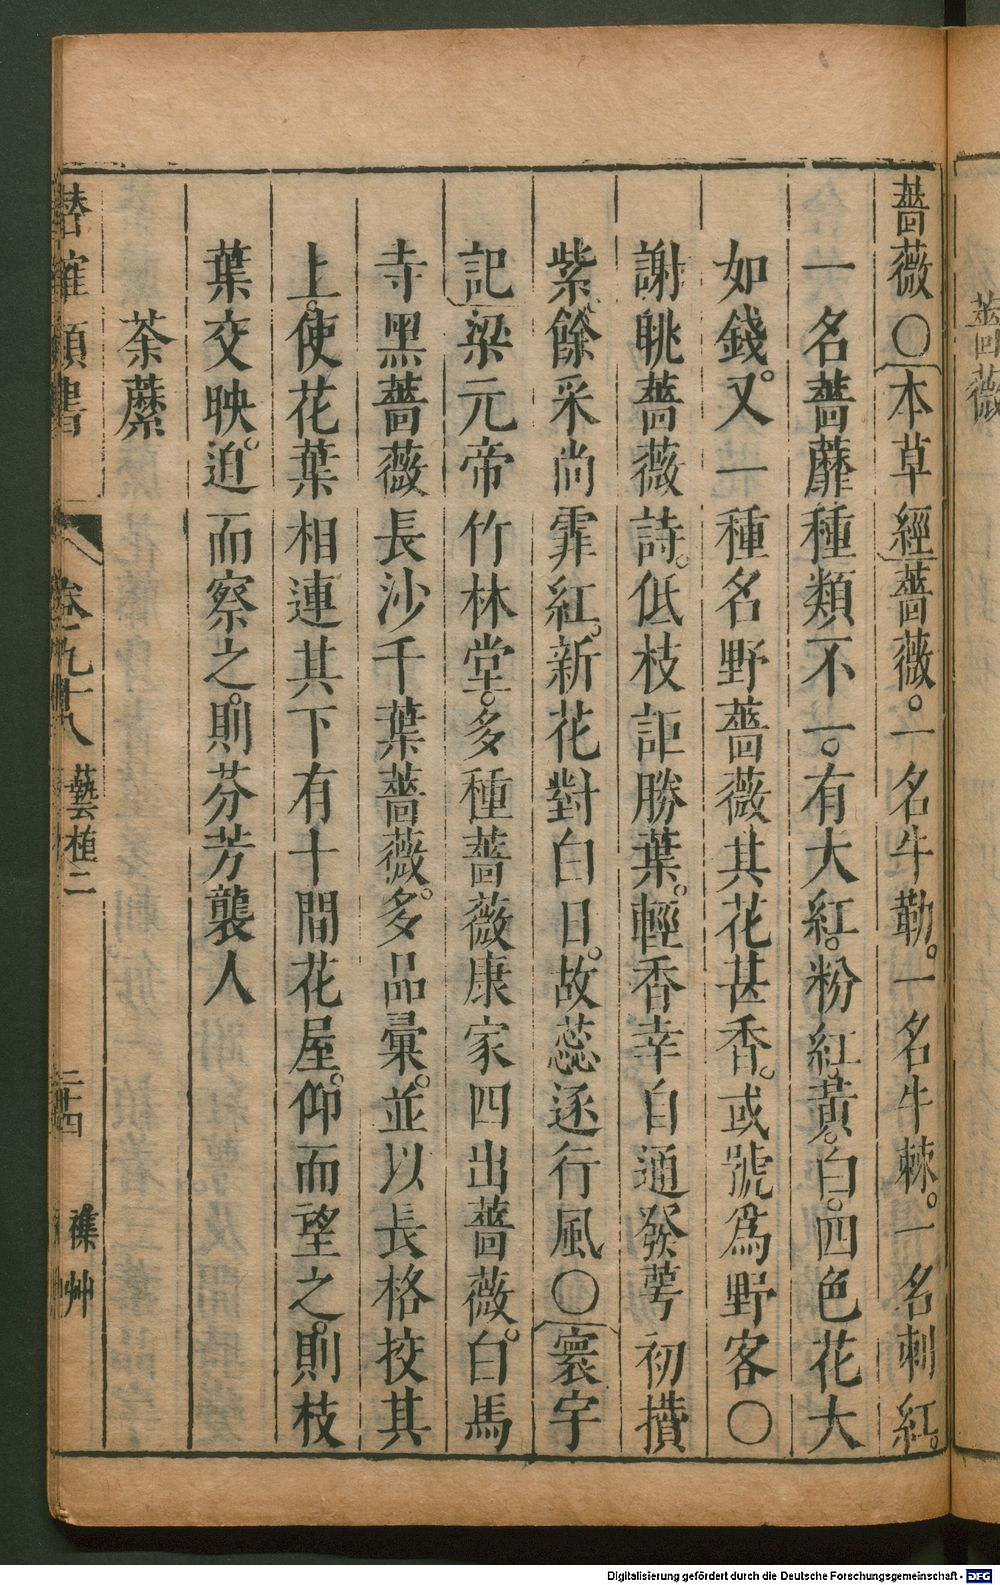 薔薇〇本草經薔薇。一名牛勒。一名牛棘。一名刺紅。
一名薔蘼種類不一。有大紅。粉紅。黃。白。四色花大
如錢。又一種名野薔薇其花甚香。或號爲野客〇
謝朓薔薇詩。低枝詎勝葉。輕香幸自通發萼初攢
紫。餘采尚霏紅。新花對白日。故蕊逐行風〇寰宇
記梁元帝竹林堂。多種薔薇康家四出薔薇。白馬
寺黑薔薇長沙千葉薔薇。多品彙。並以長格挍其
上。使花葉相連其下有十間花屋。仰而望之。則枝
葉交映。迫而察之。則芬芳襲人
荼蘼
類書
卷之九十八
藝植二
二十四
薔薇
Digitalisierung gefördert durch die Deutsche Forschungsgemeinschaft - DFG